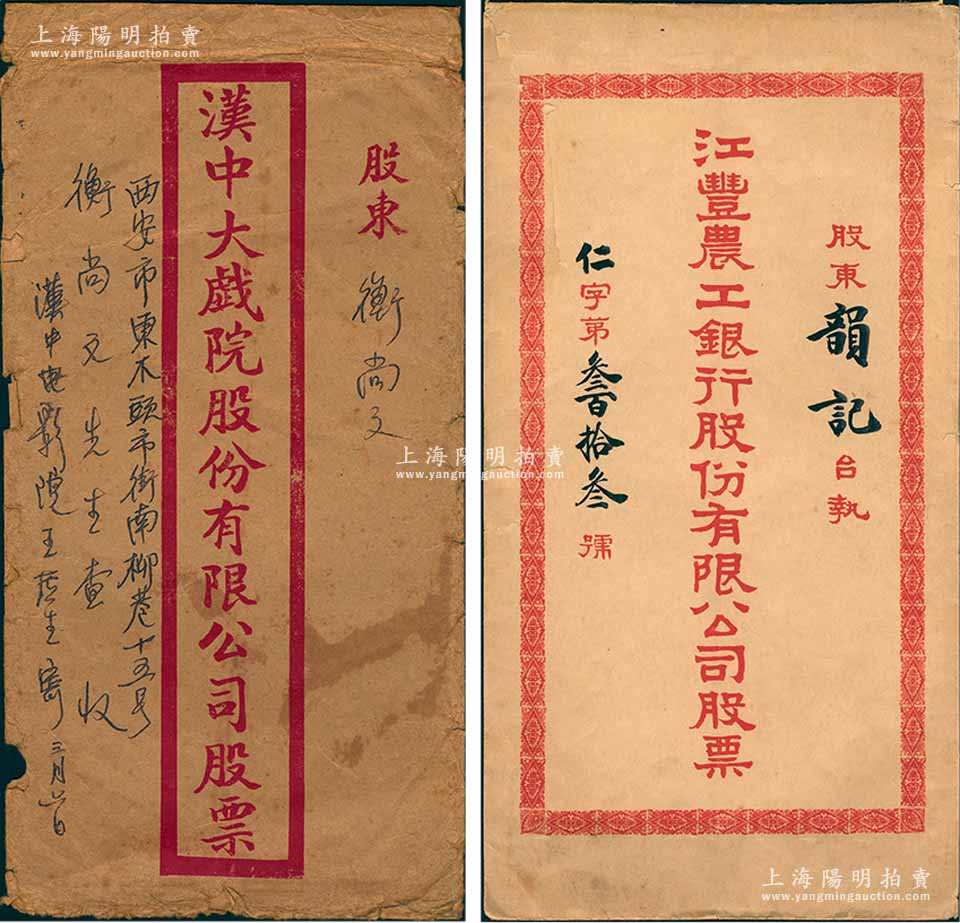 上海陽明拍賣
www.yangmingauction.com
股東 衡尚文
漢中大戯院股份有限公司股票
西安市東木頭市街南柳巷十五号
衡尚文先生查收
漢中电影院王 生寄 三月 日
上海陽明拍賣
www.yangmingauction.com
股東 韻記 台執
江豐農工銀行股份有限公司股票
仁字第叁百拾叁號
上海陽明拍賣
www.yangmingauction.com